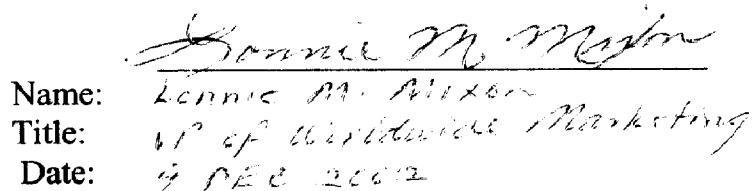 Lonnie M. Mixon
Name: Lonnie M. Mixon
Title: VP of Worldwide Marketing
Date: 9 DEC 2002